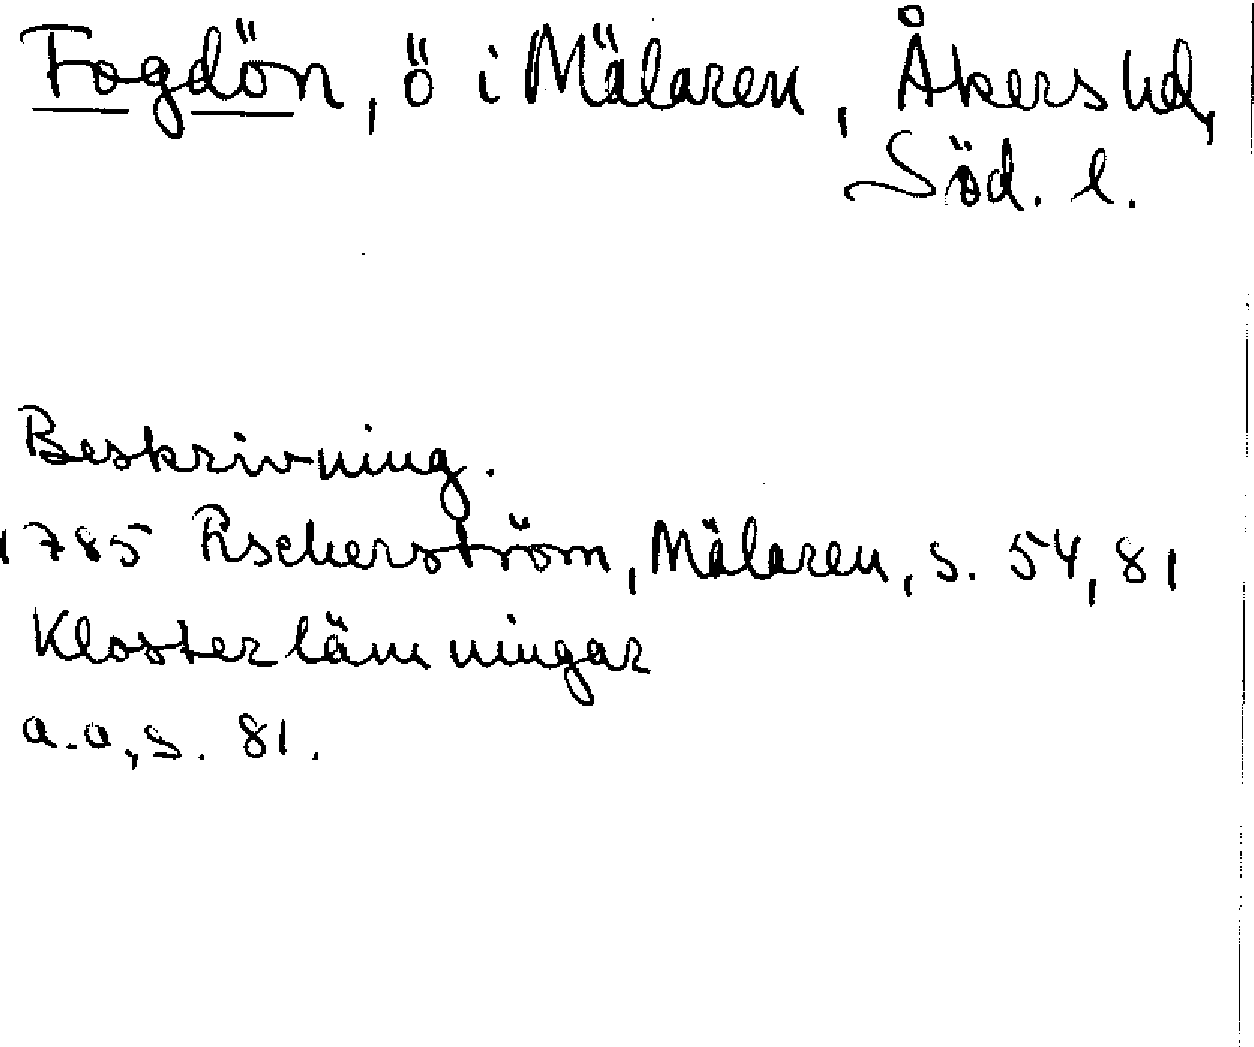 Fogdön, ö i Mälaren, Åkers hd,
Söd. l.
Beskrivning.
1785 Fischerström, Mälaren, s. 54, 81
Klosterlämningar
a.a, s. 81.